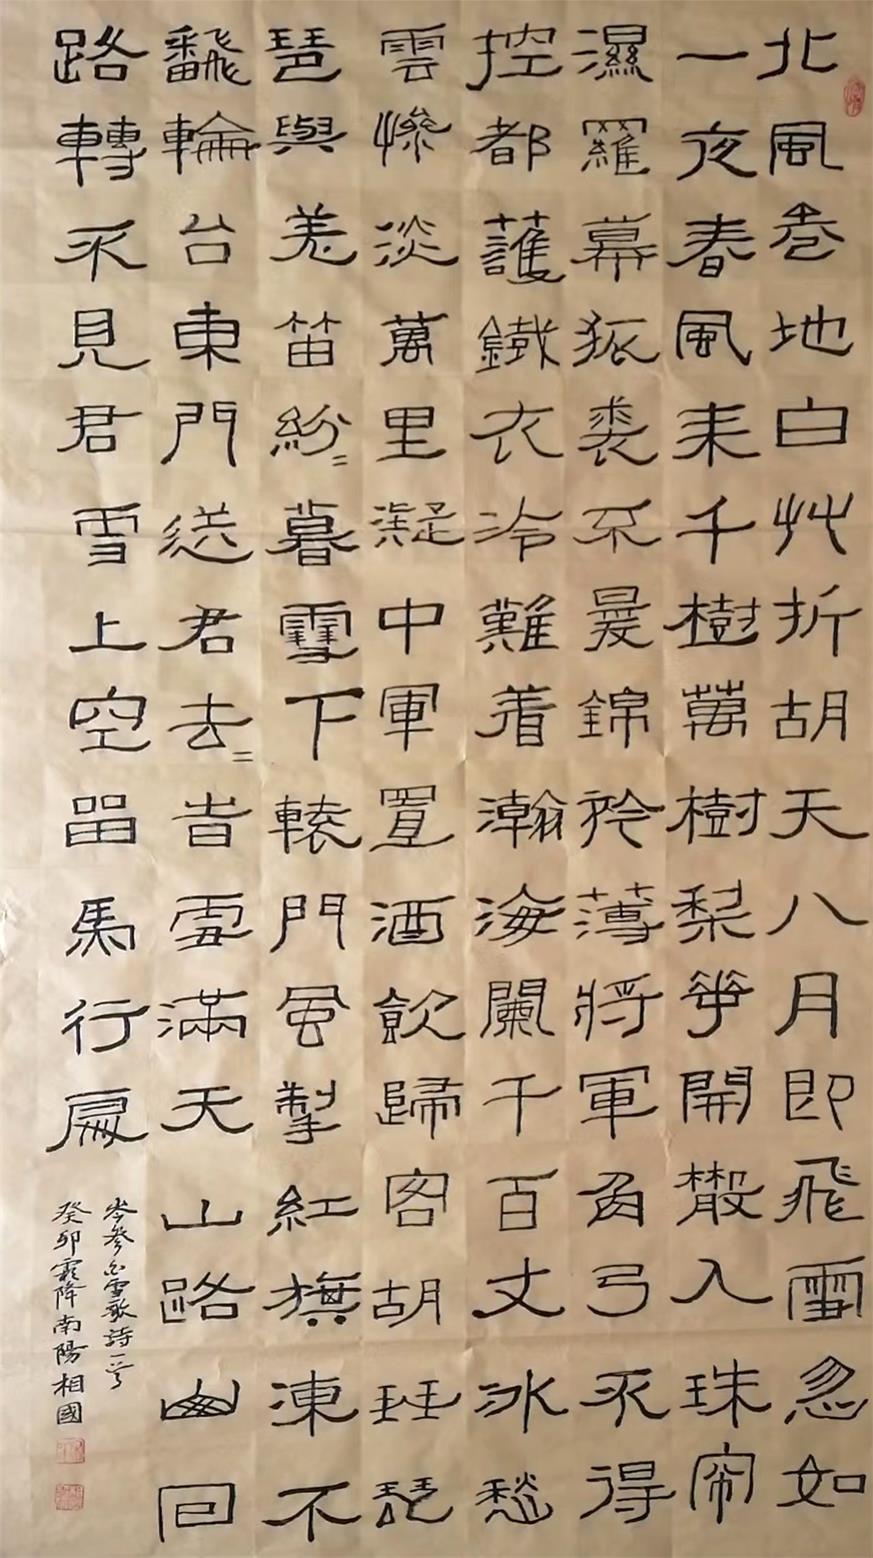 北風卷地白艸折胡天八月即飛雪忽如
一夜春風来千樹萬樹梨華開散入珠帘
濕羅幕狐裘不暖錦衾薄將軍角弓不得
控都護鐵衣冷難着瀚海闌干百丈冰愁
雲慘淡萬里凝中軍置酒飲歸客胡琴琵
琶與羌笛紛〻暮雪下轅門風掣紅旗凍不
翻輪台東門送君去〻時雪滿天山路山回
路轉不見君雪上空留馬行處
岑參白雪歌詩一首
癸卯霜降南陽相國